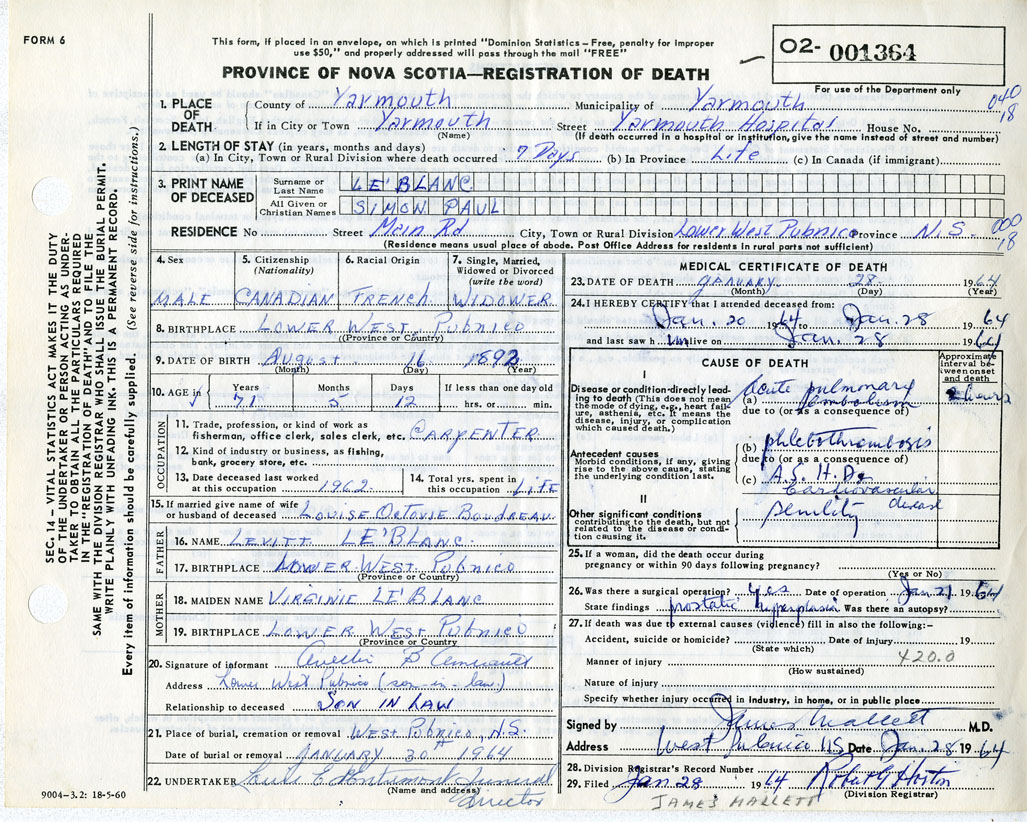 FORM 6
This form, if placed in an envelope, on which is printed "Dominion Statistics – Free, penalty for improper
use $50," and properly addressed will pass through the mail "FREE"
PROVINCE OF NOVA SCOTIA—REGISTRATION OF DEATH
O2- 001364
For use of the Department only
040
18
1. PLACE OF DEATH County of Yarmouth Municipality of Yarmouth
If in City or Town Yarmouth Street Yarmouth Hospital House No.
(Name) (If death occurred in a hospital or institution, give the name instead of street and number)
2. LENGTH OF STAY (in years, months and days)
(a) In City, Town or Rural Division where death occurred 7 Days (b) In Province Life (c) In Canada (if immigrant)
3. PRINT NAME OF DECEASED Surname or Last Name LE'BLANC
All Given or Christian Names SIMON PAUL
RESIDENCE No Street Main Rd City, Town or Rural Division Lower West Pubnico Province N.S.
000
18
(Residence means usual place of abode. Post Office Address for residents in rural parts not sufficient)
4. Sex 5. Citizenship (Nationality) 6. Racial Origin 7. Single, Married, Widowed or Divorced (write the word)
MALE CANADIAN French WIDOWER
8. BIRTHPLACE LOWER WEST PUBNICO
(Province or Country)
9. DATE OF BIRTH August 16 1892
(Month) (Day) (Year)
10. AGE in Years Months Days If less than one day old
71 5 12 hrs. or min.
OCCUPATION
11. Trade, profession, or kind of work as
fisherman, office clerk, sales clerk, etc. CARPENTER
12. Kind of industry or business, as fishing,
bank, grocery store, etc.
13. Date deceased last worked at this occupation 1962 14. Total yrs. spent in this occupation LIFE
15. If married give name of wife
or husband of deceased LOUISE OCTOVIE BOUDREAU
FATHER
16. NAME LEVITT LE'BLANC
17. BIRTHPLACE LOWER WEST PUBNICO
(Province or Country)
MOTHER
18. MAIDEN NAME VIRGINIE LE'BLANC
19. BIRTHPLACE LOWER WEST PUBNICO
(Province or Country)
20. Signature of informant
Address Lower West Pubnico (son-in-law)
Relationship to deceased SON IN LAW
21. Place of burial, cremation or removal WEST PUBNICO, N.S.
Date of burial or removal JANUARY 30 1964
22. UNDERTAKER Funeral
(Name and address)
Director
9004-3.2: 18-5-60
MEDICAL CERTIFICATE OF DEATH
23. DATE OF DEATH January 28 1964
(Month) (Day) (Year)
24. I HEREBY CERTIFY that I attended deceased from:
Jan. 20 1964 to Jan. 28 1964
and last saw him alive on Jan. 28 1964
CAUSE OF DEATH
Approximate interval between onset and death
I
Disease or condition directly leading to death (This does not mean the mode of dying, e.g., heart failure, asthenia, etc. It means the disease, injury, or complication which caused death.)
(a) Acute pulmonary embolism hours
due to (or as a consequence of)
Antecedent causes
Morbid conditions, if any, giving rise to the above cause, stating the underlying condition last.
(b) phlebothrombosis
due to (or as a consequence of)
(c) A.S.H.D.
Cardiovascular disease
II
Other significant conditions
contributing to the death, but not related to the disease or condition causing it.
Senility
25. If a woman, did the death occur during
pregnancy or within 90 days following pregnancy?
(Yes or No)
26. Was there a surgical operation? yes Date of operation Jan 21 1964
State findings prostatic hyperplasia Was there an autopsy?
27. If death was due to external causes (violence) fill in also the following:–
Accident, suicide or homicide? Date of injury 19
(State which)
420.0
Manner of injury
(How sustained)
Nature of injury
Specify whether injury occurred in industry, in home, or in public place
Signed by James Mallett M.D.
Address West Pubnico NS Date Jan. 28 1964
28. Division Registrar's Record Number
29. Filed Jan 28 1964 Robert G Horton
(Division Registrar)
JAMES MALLETT
SEC. 14 – VITAL STATISTICS ACT MAKES IT THE DUTY
OF THE UNDERTAKER OR PERSON ACTING AS UNDER-
TAKER TO OBTAIN ALL THE PARTICULARS REQUIRED
IN THE "REGISTRATION OF DEATH" AND TO FILE THE
SAME WITH THE DIVISION REGISTRAR WHO SHALL ISSUE THE BURIAL PERMIT.
WRITE PLAINLY WITH UNFADING INK. THIS IS A PERMANENT RECORD.
Every item of information should be carefully supplied. (See reverse side for instructions.)